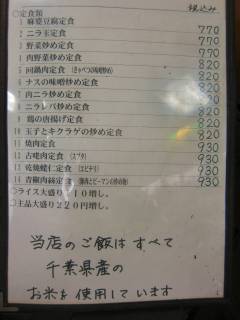 ○定食類 税込み
1 麻婆豆腐定食 770
2 ニラ玉定食 770
3 野菜炒め定食 770
4 肉野菜炒め定食 820
5 回鍋肉定食 (キャベツの味噌炒め) 820
6 ナスの味噌炒め定食 820
7 肉ニラ炒め定食 820
8 ニラレバ炒め定食 820
9 鶏の唐揚げ定食 820
10 玉子とキクラゲの炒め定食 820
11 焼肉定食 930
12 古咾肉定食 (スブタ) 930
13 乾焼蝦仁定食 (エビチリ) 930
14 青椒肉絲定食 (豚肉とピーマンの炒め物) 930
○ライス大盛り110増し。
○主品大盛り220円増し。
当店のご飯はすべて
千葉県産の
お米を使用しています